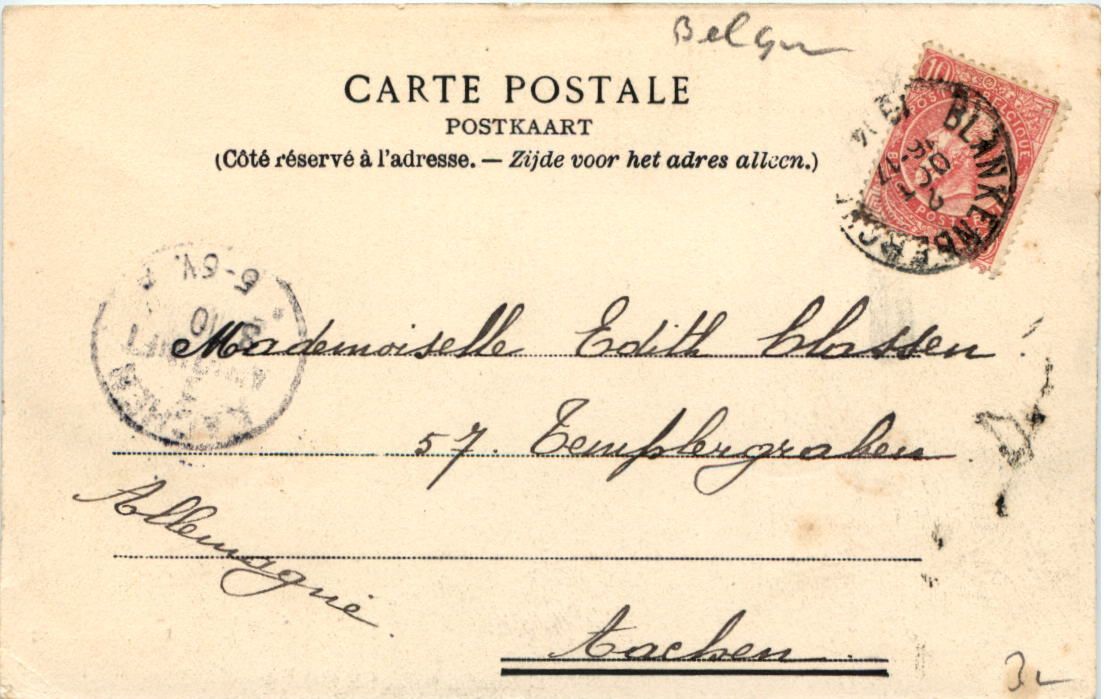 CARTE POSTALE
POSTKAART
(Côté réservé à l'adresse. — Zijde voor het adres alleen.)
10
BELGIQUE
BLANKENBERGHE
5-6V.
3 10
AACHEN
Mademoiselle Edith Classen
57. Templergraben
Allemagne
Aachen